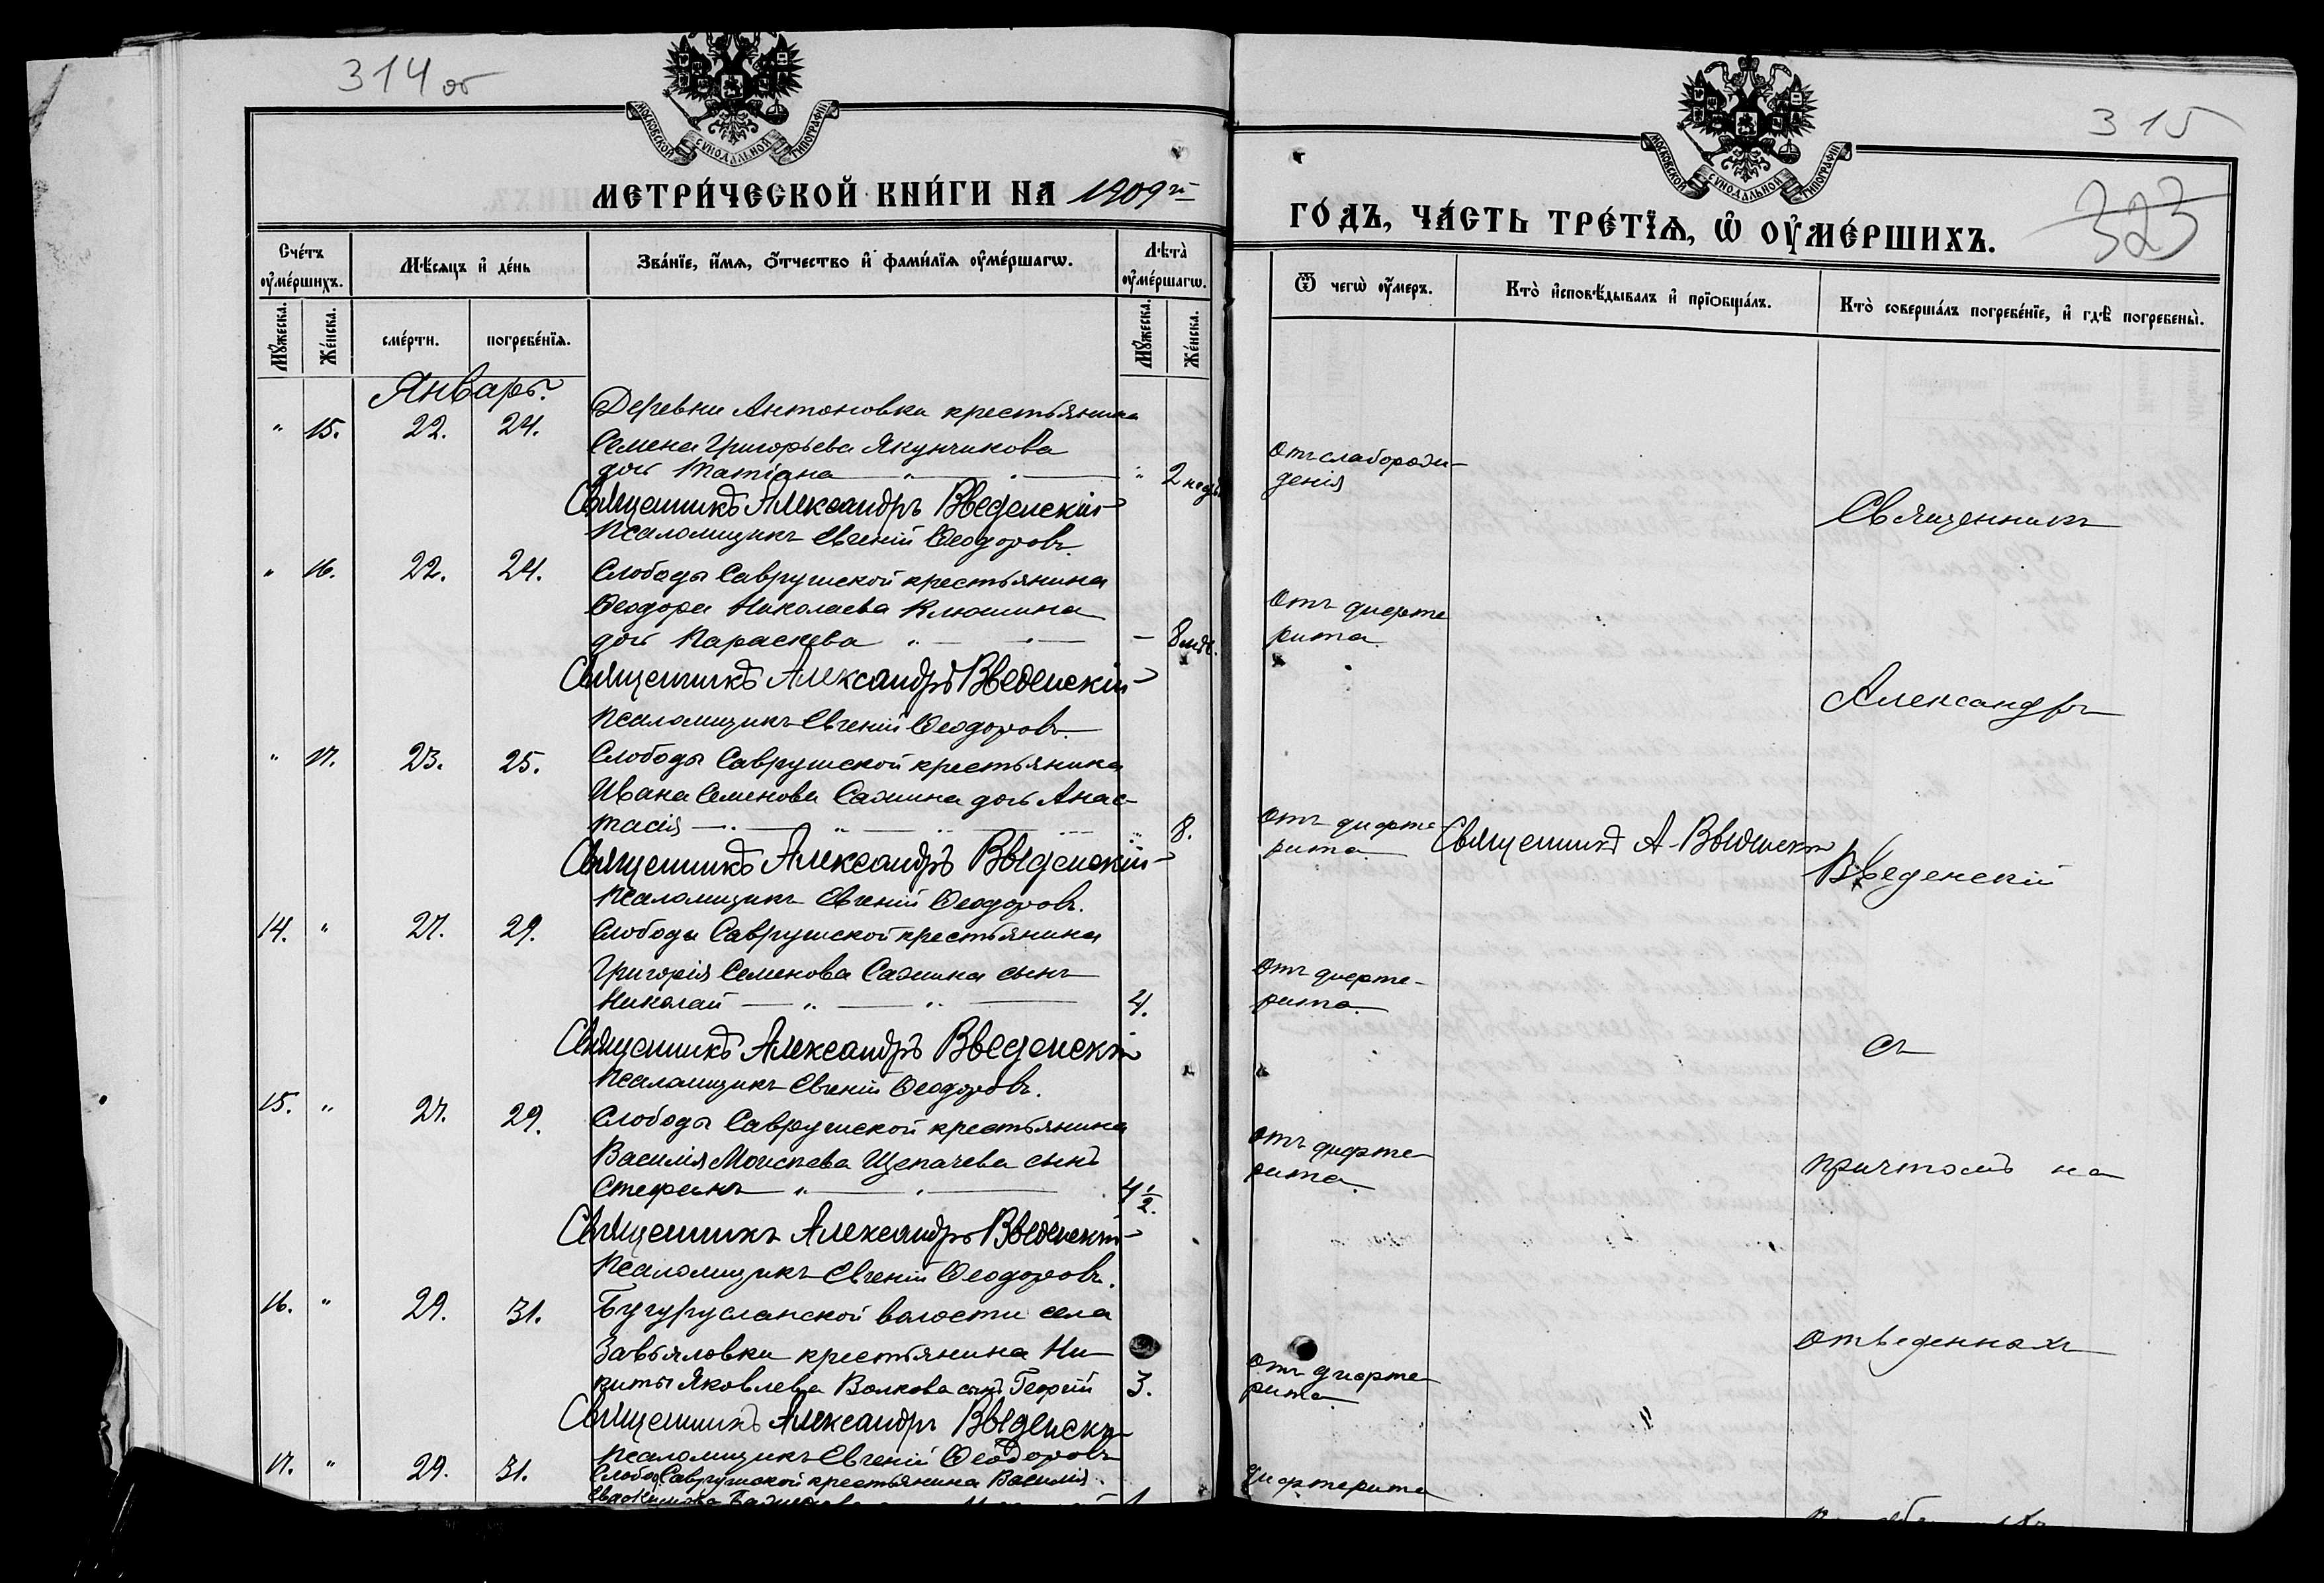 314 об
МОСКОВСКОЙ СѴНОДАЛЬНОЙ ТИПОГРАФІИ
МЕТРИ́ЧЕСКОЙ КНИ́ГИ НА 1909й
Сче́тъ оу҆ме́ршихъ.
Мѣ́сяцъ и҆ де́нь
Зва́нїе, и҆́мѧ, ѻ҆́тчество и҆ фами́лїѧ оу҆ме́ршагѡ.
Лѣта̀ оу҆ме́ршагѡ.
Мꙋ́жеска.
Же́нска.
сме́рти.
погребе́нїѧ.
Мꙋ́жеска.
Же́нска.
Январь.
" 15. 22. 24. Деревни Антоновки крестьянина
Семена Григорьева Якунчикова
дочь Татіана " 2 нед.
Священникъ Александръ Введенскій
Псаломщикъ Евгеній Ѳеодоровъ.
" 16. 22. 24. Слободы Саврушской крестьянина
Ѳеодора Николаева Клюшина
дочь Параскева — 8 мѣс.
Священникъ Александръ Введенскій
Псаломщикъ Евгеній Ѳеодоровъ.
" 17. 23. 25. Слободы Саврушской крестьянина
Ивана Семенова Сажина дочь Анас-
тасія " 8.
Священникъ Александръ Введенскій
Псаломщикъ Евгеній Ѳеодоровъ.
14. " 27. 29. Слободы Саврушской крестьянина
Григорія Семенова Сажина сынъ
Николай 4.
Священникъ Александръ Введенскій
Псаломщикъ Евгеній Ѳеодоровъ.
15. " 27. 29. Слободы Саврушской крестьянина
Василія Моисеева Щепачева сынъ
Стефанъ 4 1/2.
Священникъ Александръ Введенскій
Псаломщикъ Евгеній Ѳеодоровъ.
16. " 29. 31. Бугурусланской волости села
Завьяловки крестьянина Ни-
киты Яковлева Волкова сынъ Георгій 3.
Священникъ Александръ Введенскій
Псаломщикъ Евгеній Ѳеодоровъ
17. " 29. 31. Слобод. Саврушской крестьянина Василія
315
323
МОСКОВСКОЙ СѴНОДАЛЬНОЙ ТИПОГРАФІИ
ГО́ДЪ, ЧА́СТЬ ТРЕ́ТЇѦ, Ѡ҆ ОУ҆МЕ́РШИХЪ.
Ѿ чегѡ̀ оу҆́меръ.
Кто̀ и҆сповѣ́дывалъ и҆ прїѡбща́лъ.
Кто̀ соверша́лъ погребе́нїе, и҆ гдѣ̀ погребены̀.
Отъ слаборож-
денія
Священникъ
Отъ дифте
рита.
Александръ
Отъ дифте
рита.
Священникъ А. Введенскій
Введенскій
Отъ дифте-
рита.
съ
Отъ дифте
рита.
причтомъ на
Отъ дифте
рита.
отведенномъ
Дифтерита